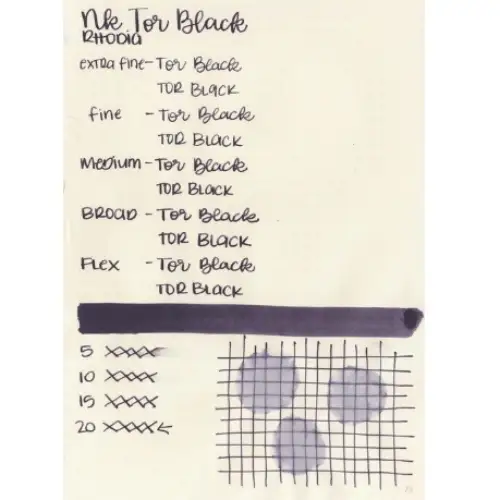 Nk Tor Black
RHODIA
extra fine - Tor Black
TOR BLACK
fine - Tor Black
TOR BLACK
MEDIUM - Tor Black
TOR BLACK
BROAD - Tor Black
TOR BLACK
FLEX - Tor Black
TOR BLACK
5 XXXX
10 XXXX
15 XXXX
20 XXXX←